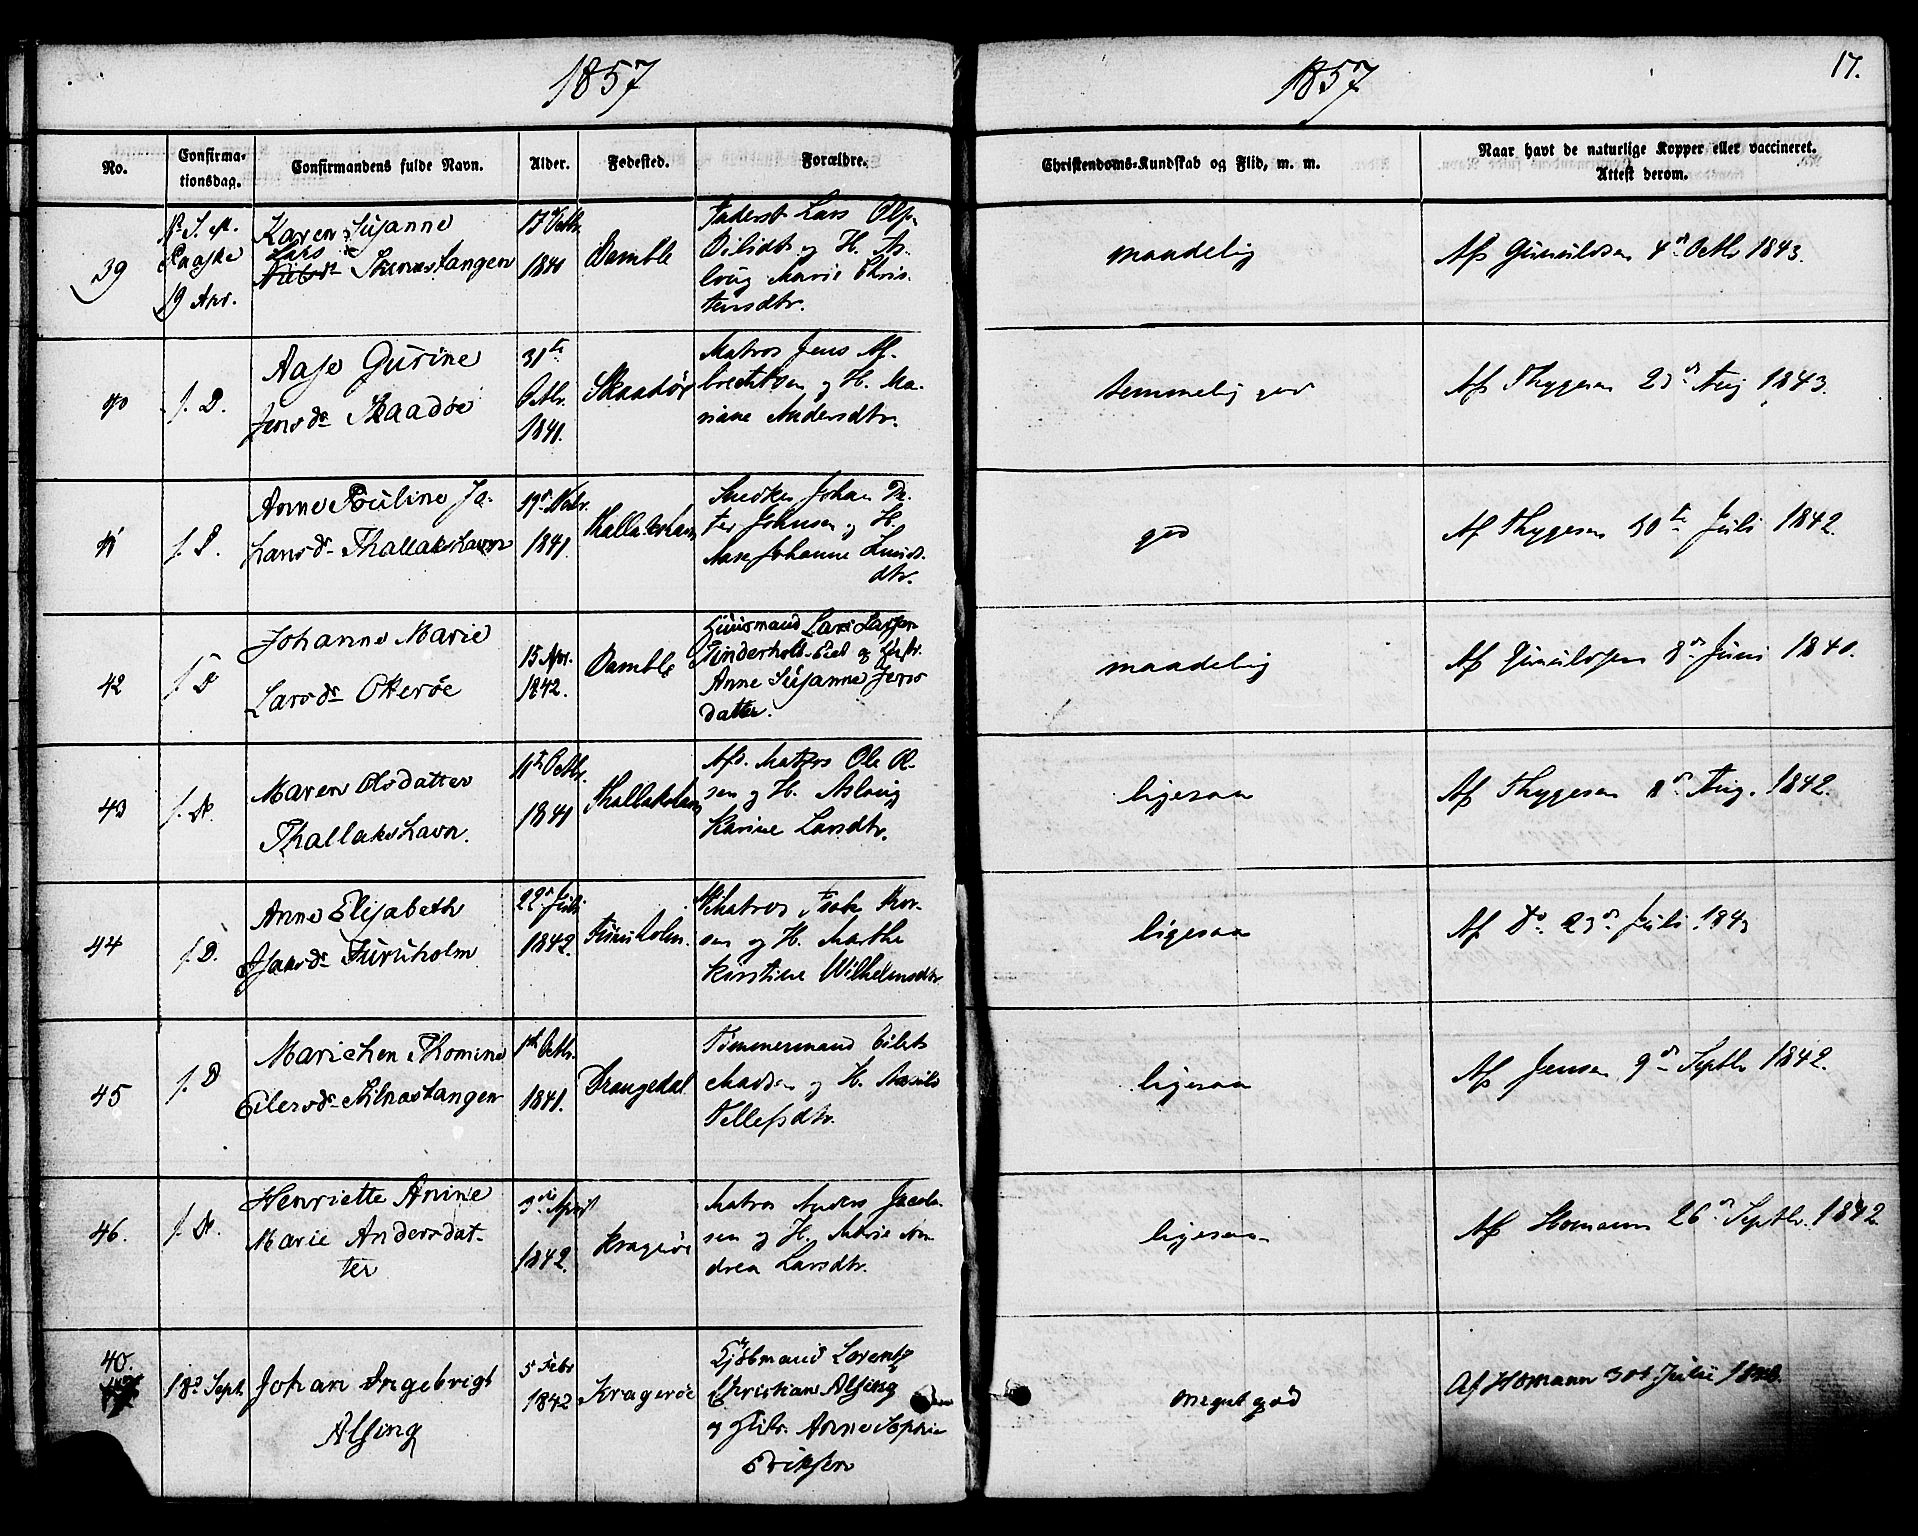 1857
1857
17.
No.
Confirma-
tionsdag.
Confirmandens fulde Navn.
Alder.
Fødested.
Forældre.
Christendoms-Kundskab og Flid, m. m.
Naar havt de naturlige Kopper eller vaccineret.
Attest derom.
39
Paaske
19 Apr.
Karen Susanne
Lars
Stangen
17 Octbr.
1841
Bamble
Lars
og H. As-
loug Marie Chris-
tensdtr.
maadelig
Af Gunuldsen 4d Octbr 1843.
40
f. D.
Aase Gurine
Jensdr Skaadøe
31te
Octbr.
1841.
Skaadøe
Matros Jens Al-
brechtsen og H. Ma-
riane Andersdtr.
temmelig god
Af Thygesen 23d Aug 1843.
41
f. D.
Anne Pouline Jo-
hansdr Thallakshavn
19d Novbr.
1841.
Thallakshavn
Snedker Johan Pe-
ter Johnsen og H.
Johanne
dtr.
god
Af Thygesen 30te Juli 1842.
42
f. D
Johanne Marie
Larsdr Otterøe
15 Apr.
1842.
Bamble
Huusmand Lars Larsen
Eiet og Hustr.
Anne Susanne Jens
datter.
maadelig
Af Gunuldsen 8d Juni 1840.
43
f. D.
Maren Olsdatter
Thallakshavn.
11te Octbr.
1841
Thallakshavn
Afd. Matros Ole Ol-
sen og H. Asloug
Karine Larsdtr.
ligesaa
Af Thygesen 8d Aug. 1842.
44
f. D.
Anne Elisabeth
Isaksdr Furuholm
22d Juli
1842.
Furuholm.
Matros Isak
sen og H. Marthe
Kirstine Wilhelmsdtr
ligesaa
Af Do 23d Juli 1843
45
f. D
Marichen Thomine
Eilersdr Stilnestangen
1ste Octbr.
1841.
Drangedal
Tømmermand Eilert
Madsen og H.
Tellefsdtr.
ligesaa
Af Jensen 9d Septbr 1842.
46.
f. D.
Henriette Anine
Marie Andersdat-
ter
3die April
1842.
Kragerøe
Matros Anders Jacob-
sen og H. Marie An-
drea Larsdtr.
ligesaa
Af Homann 26d Septbr. 1842
40.
18d Sept.
Johan Ingebrigt
Alfsing
5 Febr
1842
Kragerøe
Kjøbmand Lorentz
Christian Alfsing
og Hustr. Anne Sophie
Eriksen
meget god
Af Homann 30t Julii